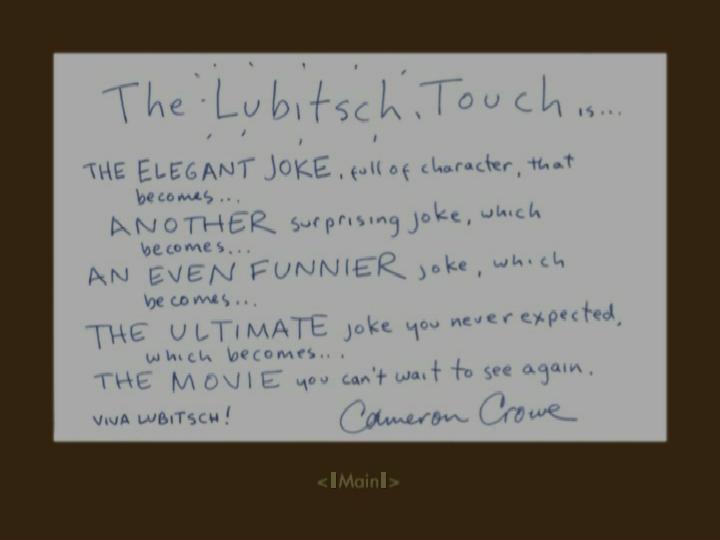 The Lubitsch Touch is...
THE ELEGANT JOKE, full of character, that
becomes...
ANOTHER surprising joke, which
becomes...
AN EVEN FUNNIER joke, which
becomes...
THE ULTIMATE joke you never expected,
which becomes...
THE MOVIE you can't wait to see again.
VIVA LUBITSCH! Cameron Crowe
<Main>